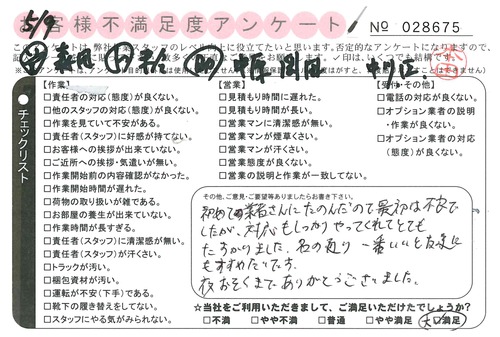 お客様不満足度アンケート
No 028675
5/9
チェックリスト
【作業】
□責任者の対応(態度)が良くない。
□他のスタッフの対応(態度)が良くない。
□作業を見ていて不安がある。
□責任者(スタッフ)に好感が持てない。
□お客様への挨拶が出来ていない。
□ご近所への挨拶・気遣いが無い。
□作業開始前の内容確認がなかった。
□作業開始時間が遅れた。
□荷物の取り扱いが雑である。
□お部屋の養生が出来ていない。
□作業時間が長すぎる。
□責任者(スタッフ)に清潔感が無い。
□責任者(スタッフ)が汗くさい。
□トラックが汚い。
□梱包資材が汚い。
□運転が不安(下手)である。
□靴下の履き替えをしてない。
□スタッフにやる気がみられない。
【営業】
□見積もり時間に遅れた。
□見積もり時間が長い。
□営業マンに清潔感が無い。
□営業マンが煙草くさい。
□営業マンが汗くさい。
□営業態度が良くない。
□営業の説明と作業が一致してない。
□電話の対応が良くない。
□オプション業者の説明
・作業が良くない。
□オプション業者の対応
(態度)が良くない。
その他、ご意見・ご要望等ありましたらお書き下さい。
初めての業者さんにたのんだので最初は不安で
したが、対応もしっかりやってくれてとても
たすかりました。名の通り一番いいと友達に
もすすめたいです。
夜おそくまでありがとうございました。
★当社をご利用いただきまして、ご満足いただけたでしょうか?
□不満 □やや不満 □普通 □やや満足 □満足